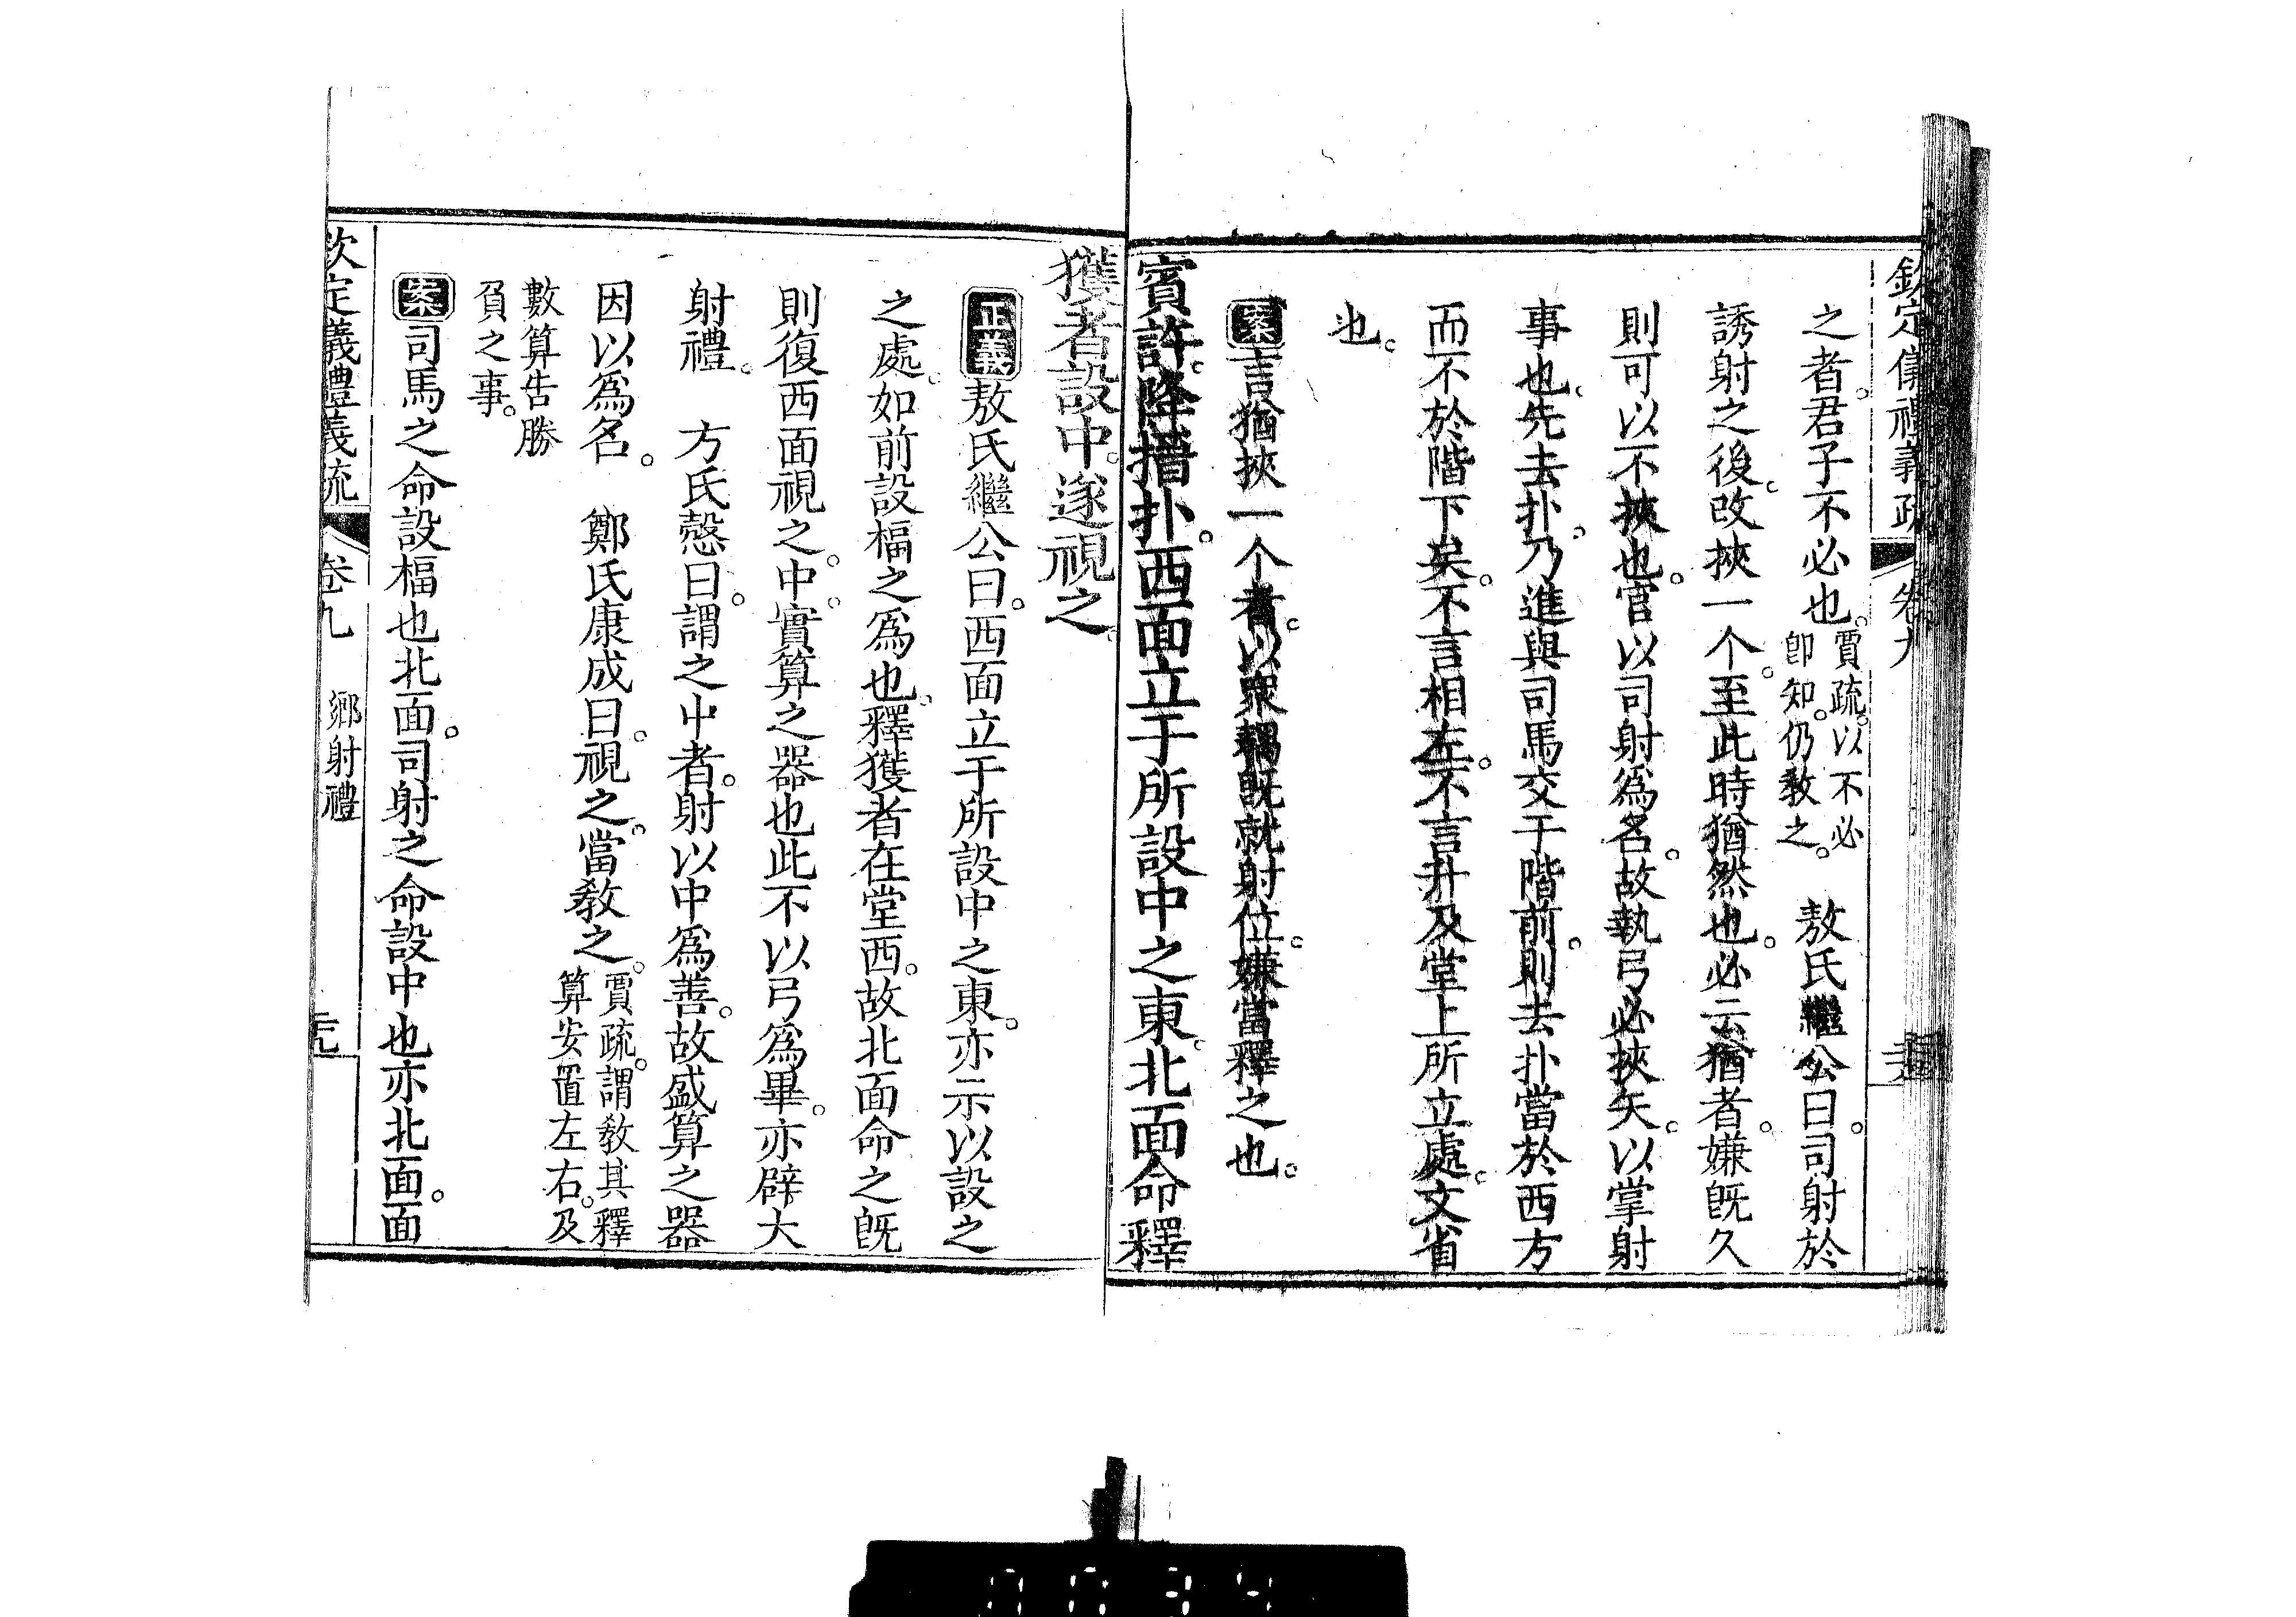 欽定儀禮義疏 卷九
之者。君子不必也。賈疏。以不必
即知。仍敎之。 敖氏繼公曰。司射於
誘射之後。改挾一个。至此時猶然也。必云猶者。嫌旣久
則可以不挾也。官以司射爲名。故執弓必挾矢。以掌射
事也。先去扑。乃進與司馬交于階前。則去扑當於西方
而不於階下矣。不言相左。不言升及堂上所立處。文省
也。
案言猶挾一个者。以衆耦旣就射位。嫌當釋之也。
賓許。降。搢扑。西面立于所設中之東。北面命釋
獲者設中。遂視之。
正義敖氏繼公曰。西面立于所設中之東。亦示以設之
之處。如前設楅之爲也。釋獲者在堂西。故北面命之旣
則復西面視之。中。實算之器也此不以弓爲畢。亦辟大
射禮。 方氏慤曰。謂之中者。射以中爲善。故盛算之器
因以爲名。 鄭氏康成曰。視之。當敎之。賈疏。謂敎其釋
算安置左右。及
數算告勝
負之事。
案司馬之命設楅也北面。司射之命設中也亦北面。面
欽定義禮義疏 卷九 鄉射禮